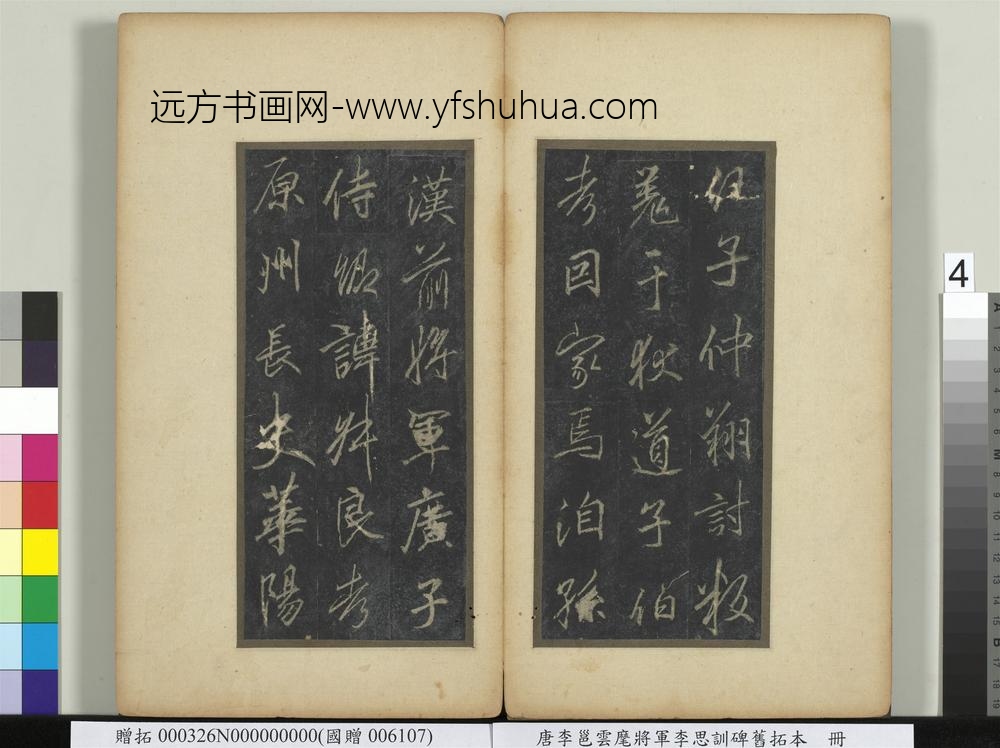 远方书画网-www.yfshuhua.com
任子仲翔討叛
羌于狄道子伯
考因家焉洎孫
漢前將軍廣子
侍郷諱㪷良考
原州長史華陽
4
贈拓 000326N000000000(國贈 006107)
唐李邕雲麾將軍李思訓碑舊拓本 冊